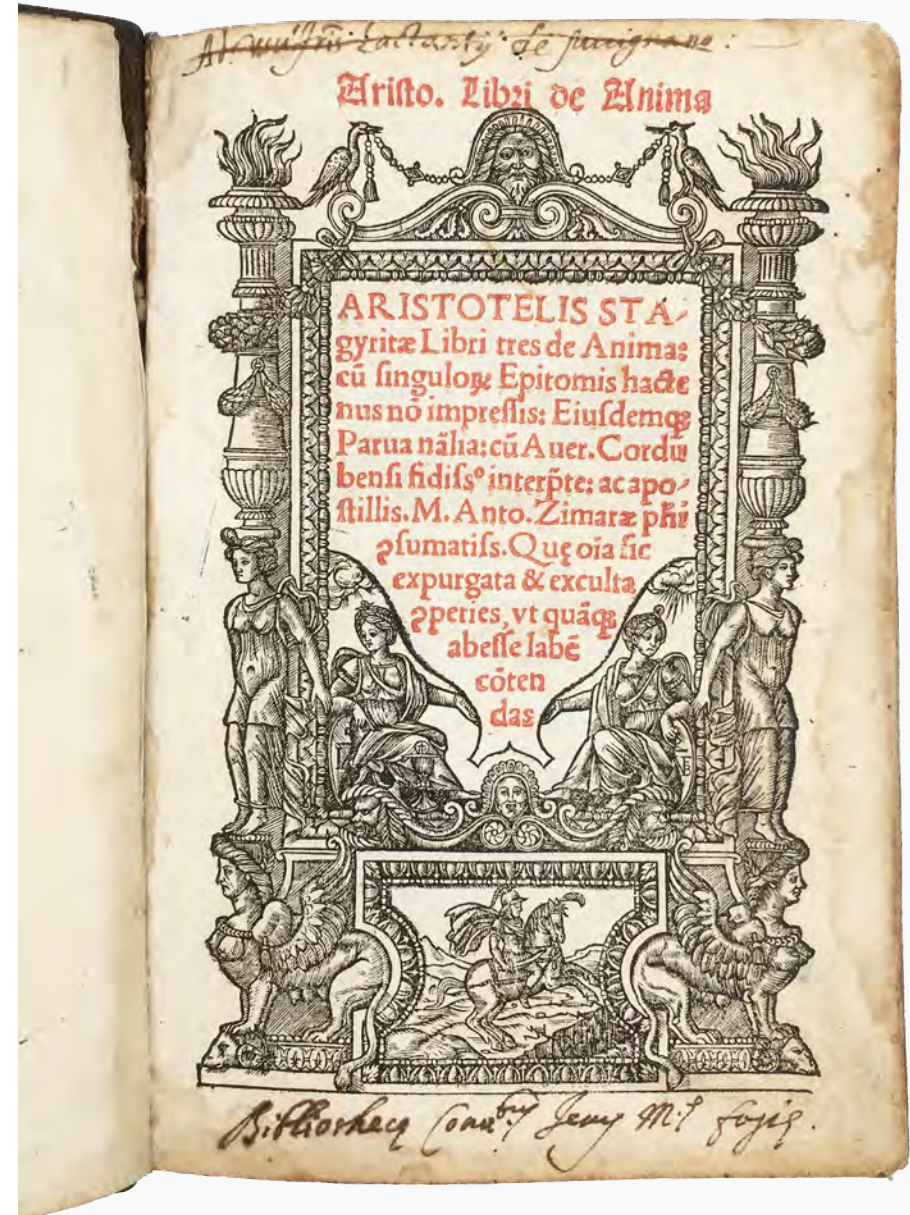 de
Aristo. Libri de Anima
ARISTOTELIS STA⸗
gyritæ Libri tres de Anima:
cū singuloꝝ Epitomis hacte
nus nō impressis: Eiusdemqꝫ
Parua nālia: cū Auer. Cordu
bensi fidissº interp̄te: ac apo⸗
stillis. M. Anto. Zimaræ pħi
ꝯsumatiss. Quę oīa sic
expurgata & exculta
ꝯperies, vt quāqꝫ
abesse labē
cōten
das
Bibliothecę M.